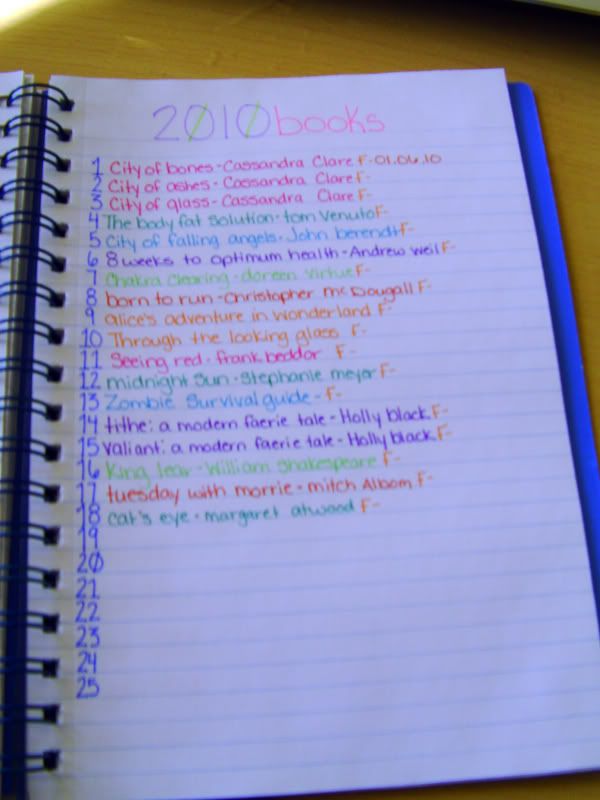 2010 books
1 City of bones - Cassandra Clare F- 01.06.10
2 City of ashes - Cassandra Clare F-
3 City of glass - Cassandra Clare F-
4 The body fat solution - tom Venuto F-
5 City of falling angels - John berendt F-
6 8 weeks to optimum health - Andrew Weil F-
7 Chakra Clearing - doreen Virtue F-
8 born to run - Christopher mcDougall F-
9 alice's adventure in Wonderland F-
10 Through the looking glass F-
11 Seeing red - frank beddor F-
12 midnight Sun - Stephanie meyer F-
13 Zombie Survival guide - F-
14 tithe: a modern faerie tale - Holly black F-
15 Valiant: a modern faerie tale - Holly black F-
16 King lear - William Shakespeare F-
17 tuesday with morrie - mitch Albom F-
18 cat's eye - margaret atwood F-
19
20
21
22
23
24
25